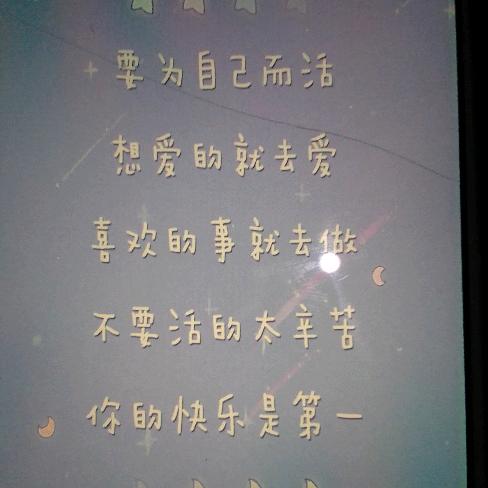 要为自己而活
想爱的就去爱
喜欢的事就去做
不要活的太辛苦
你的快乐是第一